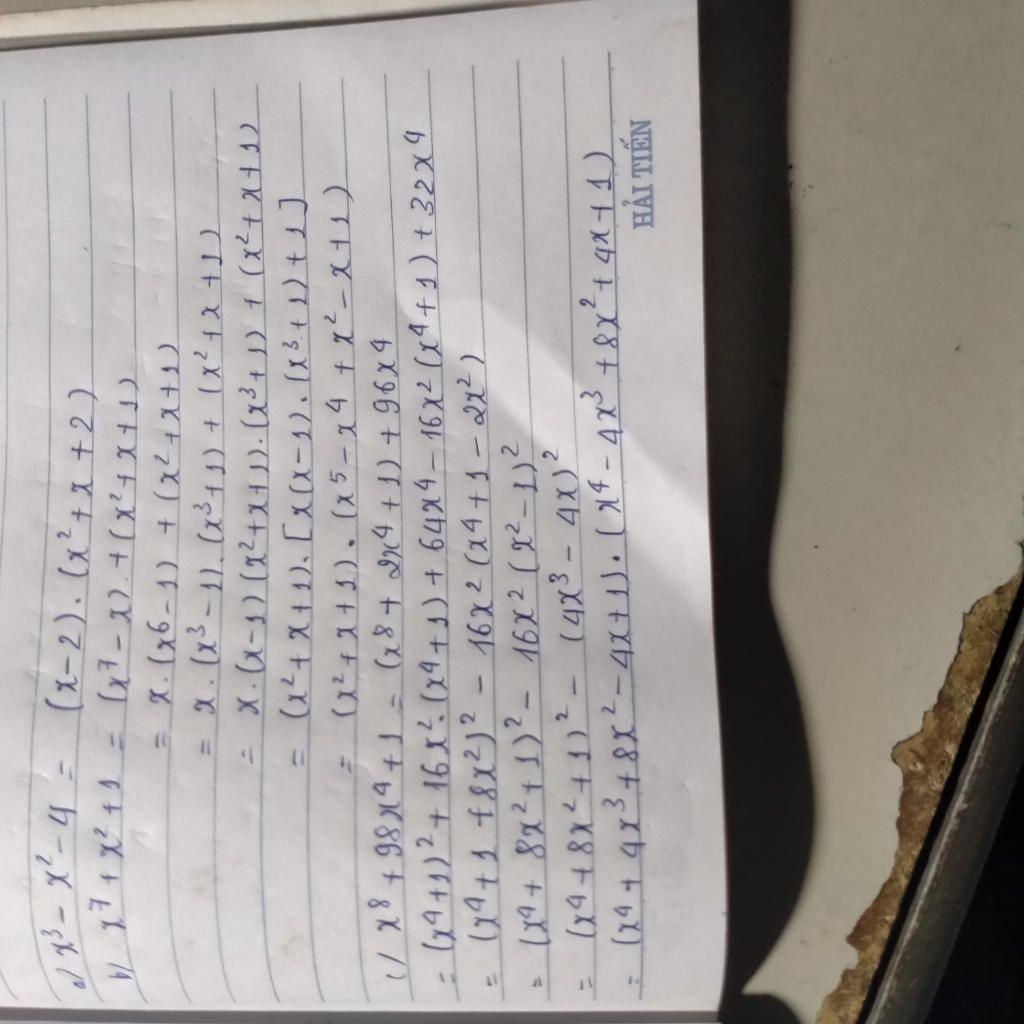 a) x³ - x² - 4 = (x - 2).(x² + x + 2)
b) x⁷ + x² + 1 = (x⁷ - x) + (x² + x + 1)
= x.(x⁶ - 1) + (x² + x + 1)
= x.(x³ - 1).(x³ + 1) + (x² + x + 1)
= x.(x - 1)(x² + x + 1).(x³ + 1) + (x² + x + 1)
= (x² + x + 1).[x(x - 1).(x³ + 1) + 1]
= (x² + x + 1).(x⁵ - x⁴ + x² - x + 1)
c) x⁸ + 98x⁴ + 1 = (x⁸ + 2x⁴ + 1) + 96x⁴
= (x⁴ + 1)² + 16x².(x⁴ + 1) + 64x⁴ - 16x²(x⁴ + 1) + 32x⁴
= (x⁴ + 1 + 8x²)² - 16x²(x⁴ + 1 - 2x²)
= (x⁴ + 8x² + 1)² - 16x²(x² - 1)²
= (x⁴ + 8x² + 1)² - (4x³ - 4x)²
= (x⁴ + 4x³ + 8x² - 4x + 1).(x⁴ - 4x³ + 8x² + 4x + 1)
HẢI TIẾN